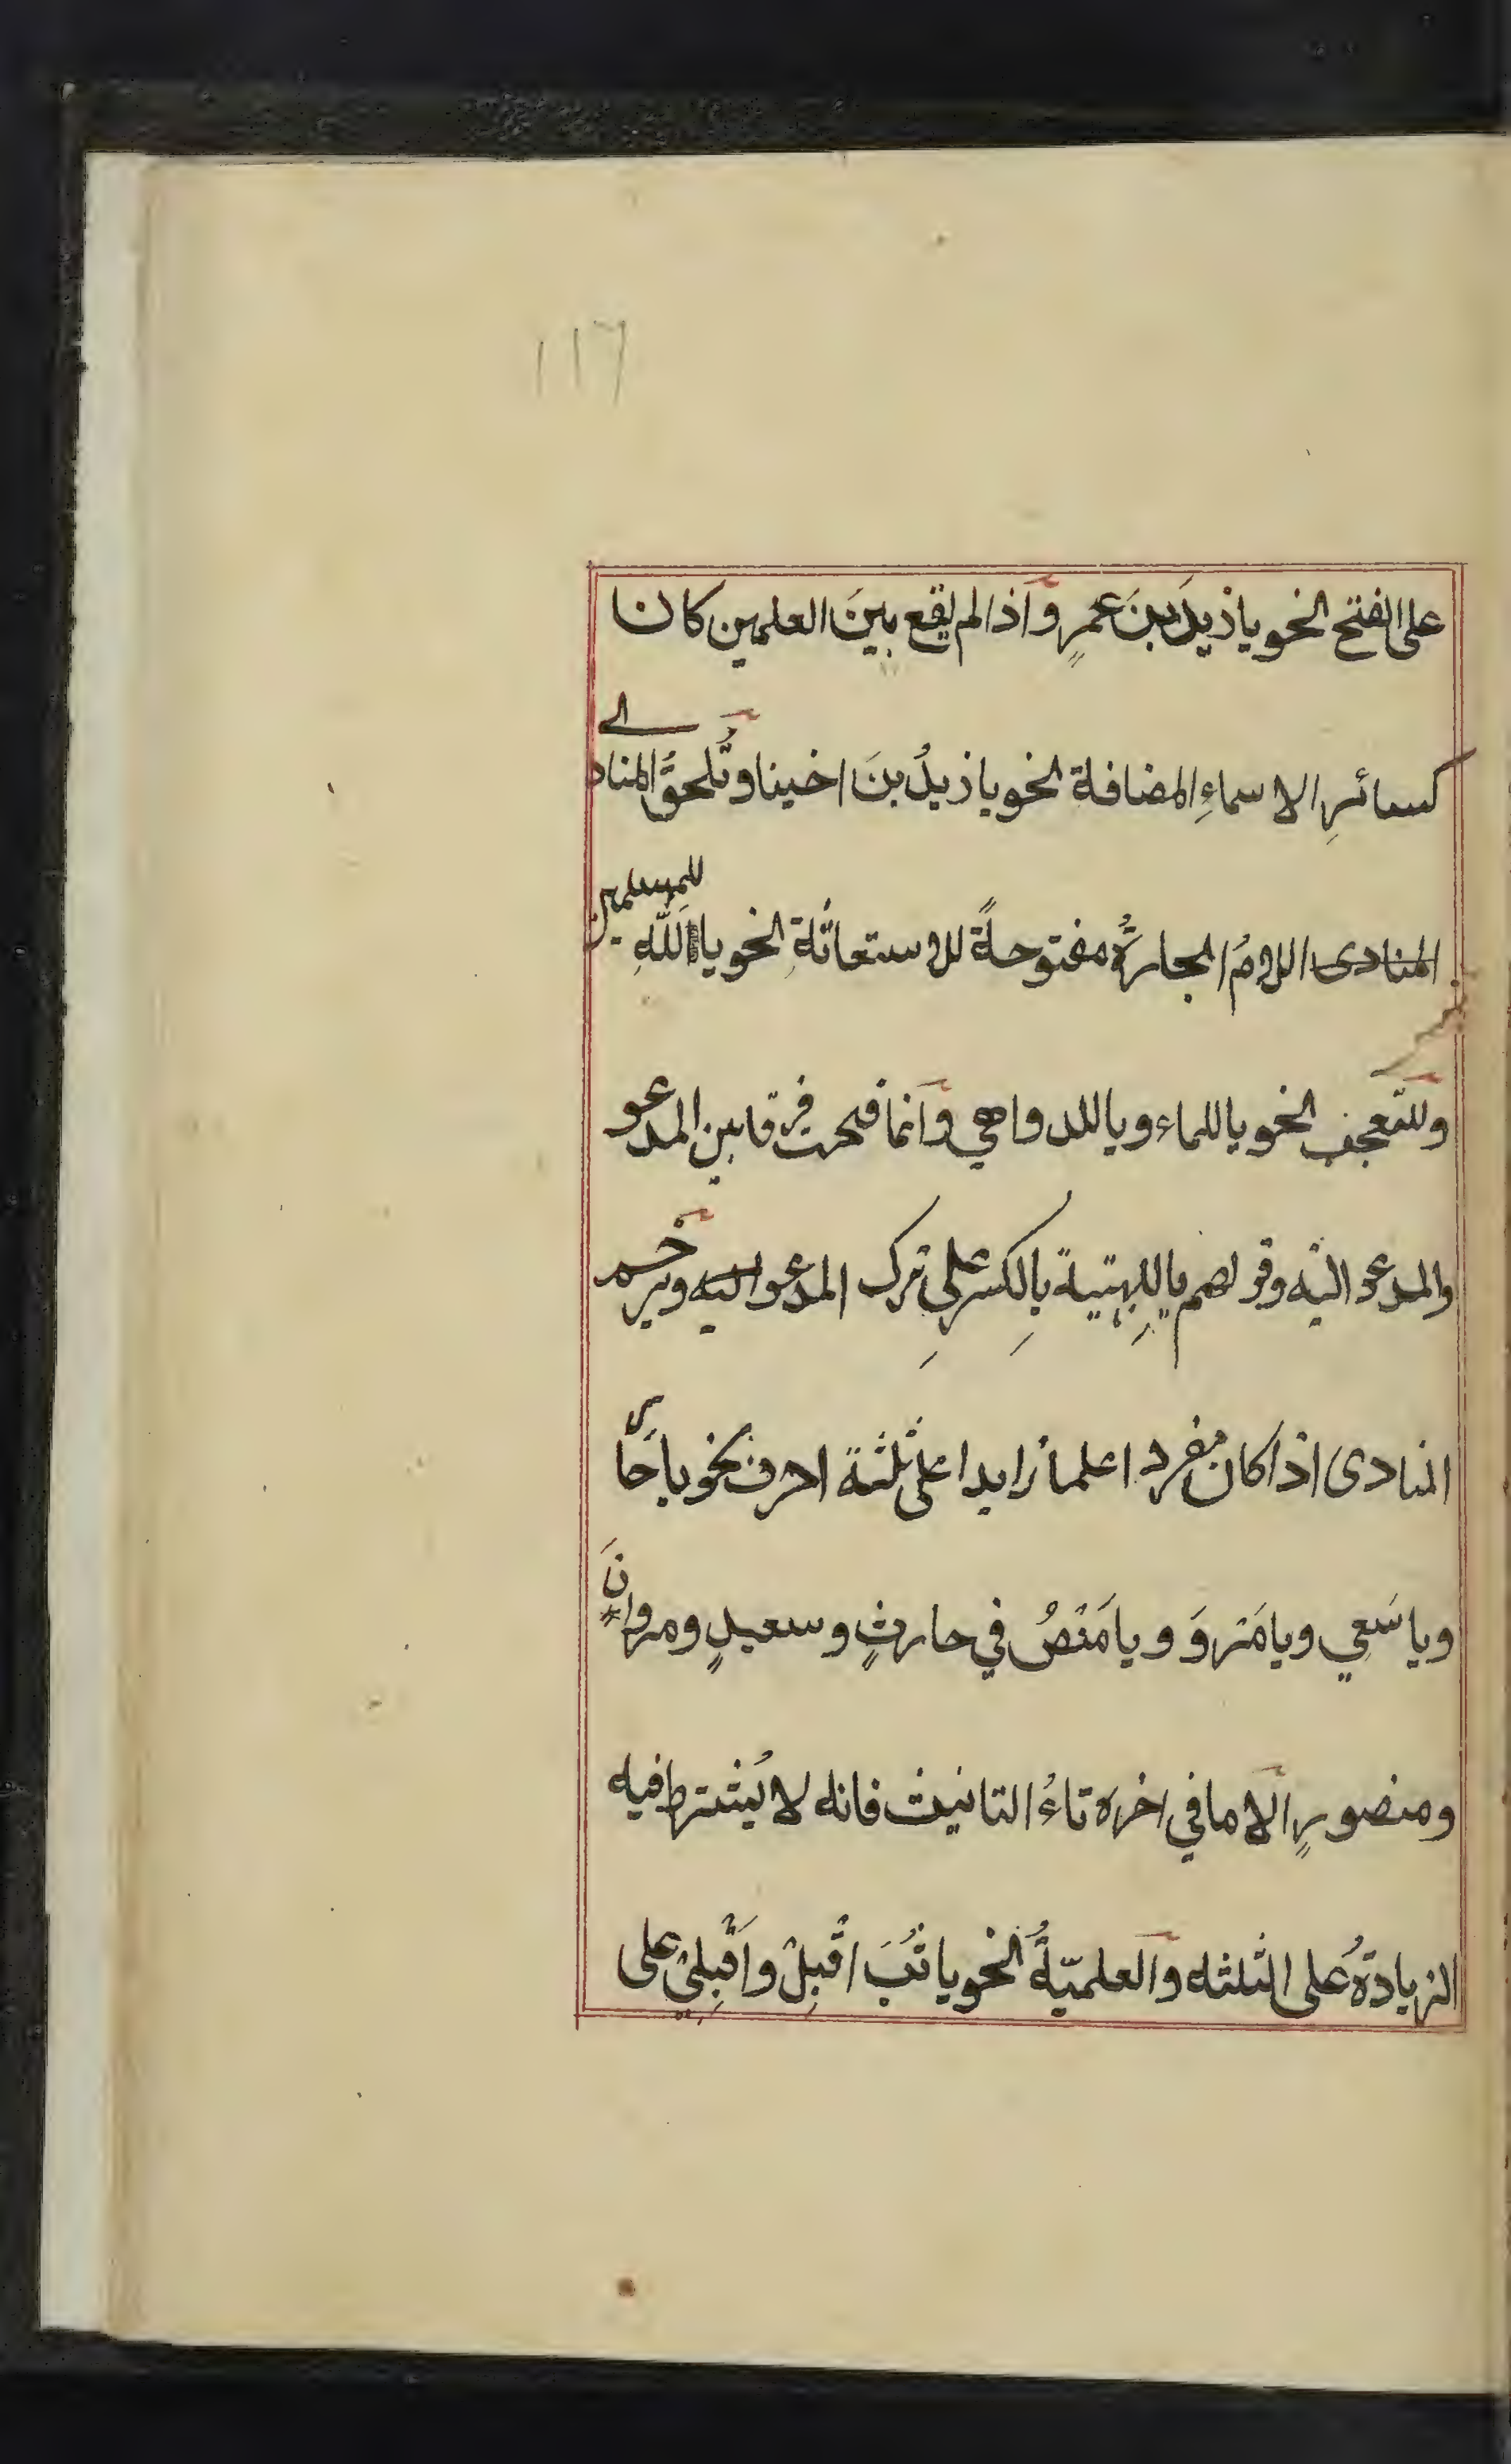 ١١٦
على الفتح نحو يا زيدَ بنَ عمرٍو واذا لم يقع بينَ العلمين كان
كسائرِ الاسماءِ المضافة نحو يا زيدُ بنَ اخينا وتُلحقُ المنادى
المنادى اللامُ الجارةُ مفتوحةً للاستغاثةِ نحو يا اللهِ للمسلمين
وللتعجب نحو يا للماء ويا للدواهي وانما فتحت فرقا بين المدعو
والمدعو اليه وقولهم يا لِلبهيتة بِالكسر على تركِ المدعو اليه ويرخم
المنادى اذا كان مفردا علما زايدا على ثلثة احرف نحو يا حارُ
ويا سَعِي ويا مَروَ ويا مَنْصُ في حارثٍ وسعيدٍ ومروانَ
ومنصورٍ الا ما في اخره تاءُ التانيث فانه لا يُشترط فيه
الزيادةُ على الثلثه والعلميّةُ نحو يا ثُبَ اقْبِلْ واَقْبِلِيْ على